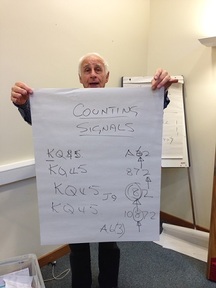 COUNTING
SIGNALS
KQ85 A62
KQ45 872
KQ45 J9 82
KQ45 10872